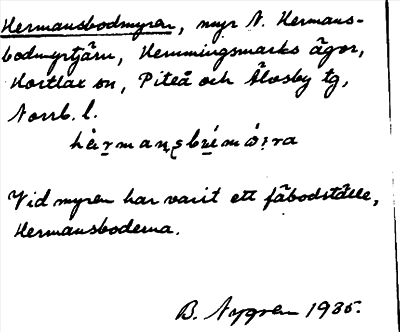 Hermansbodmyren, myr N. Hermans-
bodmyrtjärn, Hemmingsmarks ägor,
Hortlax sn, Piteå och Älvsby tg,
Norrb. l.
Vid myren har varit ett fäbodställe,
Hermansboderna.
B. Nygren 1935.